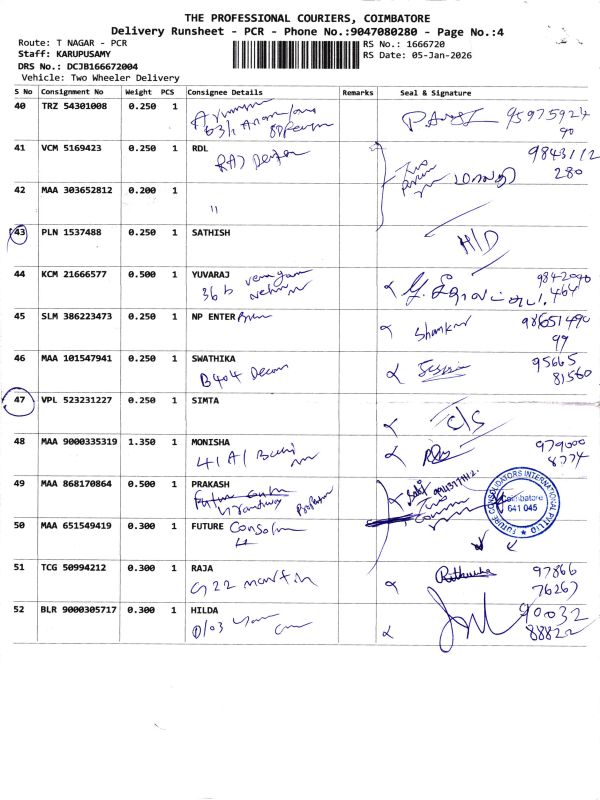 THE PROFESSIONAL COURIERS, COIMBATORE
Delivery Runsheet - PCR - Phone No.:9047080280 - Page No.:4
Route: T NAGAR - PCR
RS No.: 1666720
Staff: KARUPUSAMY
RS Date: 05-Jan-2026
DRS No.: DCJB166672004
Vehicle: Two Wheeler Delivery
S No Consignment No Weight PCS Consignee Details Remarks Seal & Signature
40 TRZ 54301008 0.250 1 95975924
63/1
90
41 VCM 5169423 0.250 1 RDL 9843112
280
42 MAA 303652812 0.200 1
"
43 PLN 1537488 0.250 1 SATHISH H/D
44 KCM 21666577 0.500 1 YUVARAJ
36 b 464
45 SLM 386223473 0.250 1 NP ENTER
Shankar
99
46 MAA 101547941 0.250 1 SWATHIKA 95665
B404 81560
47 VPL 523231227 0.250 1 SIMTA C/S
48 MAA 9000335319 1.350 1 MONISHA 979000
41 A/ 8774
49 MAA 868170864 0.500 1 PRAKASH
FUTURE CONSOLIDATORS INTERNATIONAL PVT LTD
Coimbatore
641 045
50 MAA 651549419 0.300 1 FUTURE
51 TCG 50994212 0.300 1 RAJA 97866
G 22 martin 76267
52 BLR 9000305717 0.300 1 HILDA 90032
D/03 88822